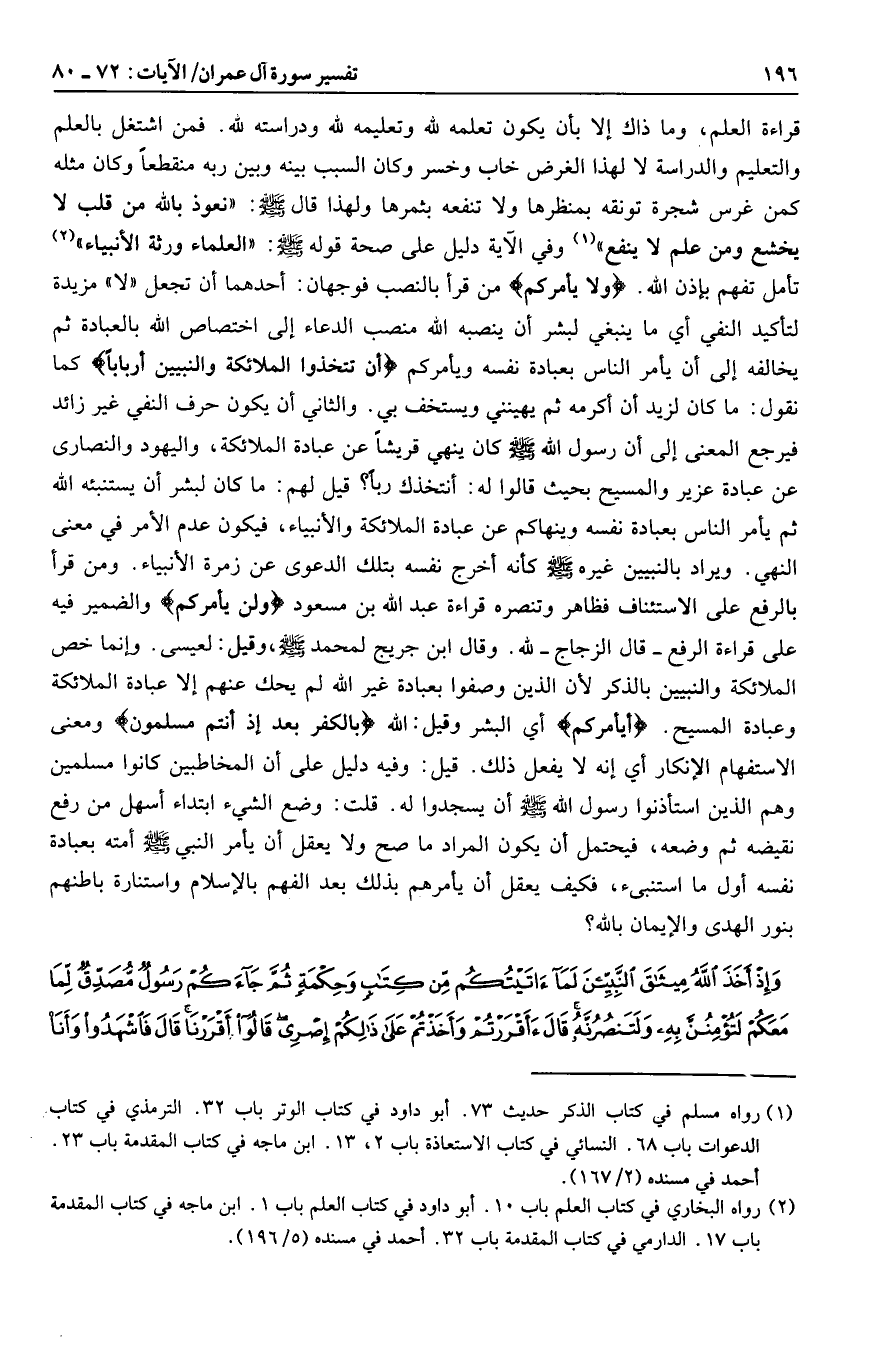 ١٩٦ تفسير سورة آل عمران/ الآيات: ٧٢ ـ ٨٠
قراءة العلم، وما ذاك إلا بأن يكون تعلمه لله وتعليمه لله ودراسته لله. فمن اشتغل بالعلم
والتعليم والدراسة لا لهذا الغرض خاب وخسر وكان السبب بينه وبين ربه منقطعاً وكان مثله
كمن غرس شجرة تونقه بمنظرها ولا تنفعه بثمرها ولهذا قال ﷺ: «نعوذ بالله من قلب لا
يخشع ومن علم لا ينفع»(١) وفي الآية دليل على صحة قوله ﷺ: «العلماء ورثة الأنبياء»(٢)
تأمل تفهم بإذن الله. ﴿ولا يأمركم﴾ من قرأ بالنصب فوجهان: أحدهما أن تجعل «لا» مزيدة
لتأكيد النفي أي ما ينبغي لبشر أن ينصبه الله منصب الدعاء إلى اختصاص الله بالعبادة ثم
يخالفه إلى أن يأمر الناس بعبادة نفسه ويأمركم ﴿أن تتخذوا الملائكة والنبيين أرباباً﴾ كما
نقول: ما كان لزيد أن أكرمه ثم يهينني ويستخف بي. والثاني أن يكون حرف النفي غير زائد
فيرجع المعنى إلى أن رسول الله ﷺ كان ينهي قريشاً عن عبادة الملائكة، واليهود والنصارى
عن عبادة عزير والمسيح بحيث قالوا له: أنتخذك رباً؟ قيل لهم: ما كان لبشر أن يستنبئه الله
ثم يأمر الناس بعبادة نفسه وينهاكم عن عبادة الملائكة والأنبياء، فيكون عدم الأمر في معنى
النهي. ويراد بالنبيين غيره ﷺ كأنه أخرج نفسه بتلك الدعوى عن زمرة الأنبياء. ومن قرأ
بالرفع على الاستئناف فظاهر وتنصره قراءة عبد الله بن مسعود ﴿ولن يأمركم﴾ والضمير فيه
على قراءة الرفع ـ قال الزجاج ـ لله. وقال ابن جريج لمحمد ﷺ، وقيل: لعيسى. وإنما خص
الملائكة والنبيين بالذكر لأن الذين وصفوا بعبادة غير الله لم يحك عنهم إلا عبادة الملائكة
وعبادة المسيح. ﴿أيأمركم﴾ أي البشر وقيل: الله ﴿بالكفر بعد إذ أنتم مسلمون﴾ ومعنى
الاستفهام الإنكار أي إنه لا يفعل ذلك. قيل: وفيه دليل على أن المخاطبين كانوا مسلمين
وهم الذين استأذنوا رسول الله ﷺ أن يسجدوا له. قلت: وضع الشيء ابتداء أسهل من رفع
نقيضه ثم وضعه، فيحتمل أن يكون المراد ما صح ولا يعقل أن يأمر النبي ﷺ أمته بعبادة
نفسه أول ما استنبىء، فكيف يعقل أن يأمرهم بذلك بعد الفهم بالإسلام واستنارة باطنهم
بنور الهدى والإيمان بالله؟
وَإِذْ أَخَذَ ٱللَّهُ مِيثَٰقَ ٱلنَّبِيِّۦنَ لَمَآ ءَاتَيْتُكُم مِّن كِتَٰبٍ وَحِكْمَةٍ ثُمَّ جَآءَكُمْ رَسُولٌ مُّصَدِّقٌ لِّمَا
مَعَكُمْ لَتُؤْمِنُنَّ بِهِۦ وَلَتَنصُرُنَّهُۥ ۚ قَالَ ءَأَقْرَرْتُمْ وَأَخَذْتُمْ عَلَىٰ ذَٰلِكُمْ إِصْرِى ۖ قَالُوٓا۟ أَقْرَرْنَا ۚ قَالَ فَٱشْهَدُوا۟ وَأَنَا۠
(١) رواه مسلم في كتاب الذكر حديث ٧٣. أبو داود في كتاب الوتر باب ٣٢. الترمذي في كتاب
الدعوات باب ٦٨. النسائي في كتاب الاستعاذة باب ٢، ١٣. ابن ماجه في كتاب المقدمة باب ٢٣.
أحمد في مسنده (٢/ ١٦٧).
(٢) رواه البخاري في كتاب العلم باب ١٠. أبو داود في كتاب العلم باب ١. ابن ماجه في كتاب المقدمة
باب ١٧. الدارمي في كتاب المقدمة باب ٣٢. أحمد في مسنده (٥/ ١٩٦).